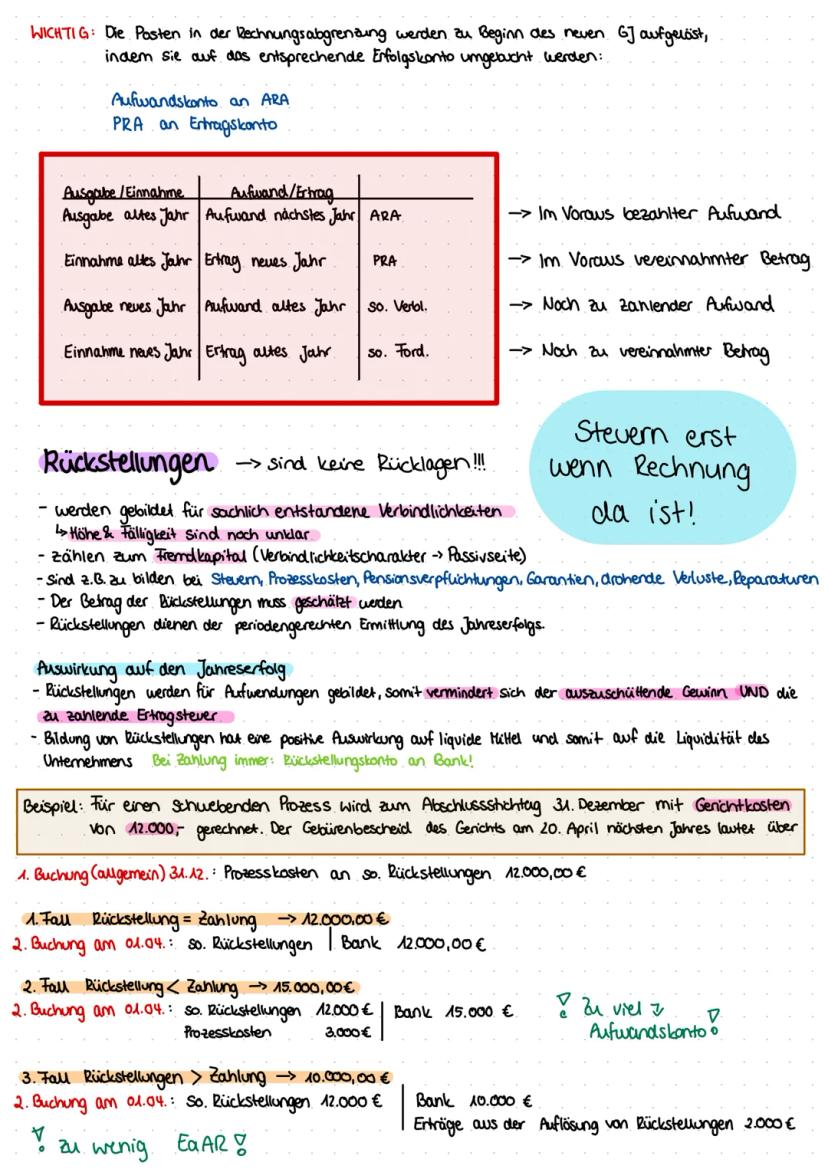 WICHTIG: Die Posten in der Rechnungsabgrenzung werden zu Beginn des neuen GJ aufgelöst,
indem sie auf das entsprechende Erfolgskonto umgebucht werden:
Aufwandskonto an ARA
PRA an Ertragskonto
Ausgabe/Einnahme Aufwand/Ertrag
Ausgabe altes Jahr Aufwand nächstes Jahr ARA → Im Voraus bezahlter Aufwand
Einnahme altes Jahr Ertrag neues Jahr PRA → Im Voraus vereinnahmter Betrag
Ausgabe neues Jahr Aufwand altes Jahr so. Verbl. → Noch zu zahlender Aufwand
Einnahme neues Jahr Ertrag altes Jahr so. Ford. → Noch zu vereinnahmter Betrag
Steuern erst
wenn Rechnung
da ist!
Rückstellungen → sind keine Rücklagen!!!
- werden gebildet für sachlich entstandene Verbindlichkeiten
↳ Höhe & Fälligkeit sind noch unklar
- zählen zum Fremdkapital (Verbindlichkeitscharakter → Passivseite)
- Sind z.B. zu bilden bei Steuern, Prozesskosten, Pensionsverpflichtungen, Garantien, drohende Verluste, Reparaturen
- Der Betrag der Rückstellungen muss geschätzt werden
- Rückstellungen dienen der periodengerechten Ermittlung des Jahreserfolgs.
Auswirkung auf den Jahreserfolg
- Rückstellungen werden für Aufwendungen gebildet, somit vermindert sich der auszuschüttende Gewinn UND die
zu zahlende Ertragsteuer
- Bildung von Rückstellungen hat eine positive Auswirkung auf liquide Mittel und somit auf die Liquidität des
Unternehmens Bei Zahlung immer: Rückstellungskonto an Bank!
Beispiel: Für einen schwebenden Prozess wird zum Abschlussstichtag 31. Dezember mit Gerichtkosten
von 12.000,- gerechnet. Der Gebürenbescheid des Gerichts am 20. April nächsten Jahres lautet über
1. Buchung (allgemein) 31.12.: Prozesskosten an so. Rückstellungen 12.000,00 €
1. Fall Rückstellung = Zahlung → 12.000,00 €
2. Buchung am 01.04.: so. Rückstellungen | Bank 12.000,00 €
2. Fall Rückstellung < Zahlung → 15.000,00 €
2. Buchung am 01.04.: so. Rückstellungen 12.000 € | Bank 15.000 € ! Zu viel →
Prozesskosten 3.000 € Aufwandskonto !
3. Fall Rückstellungen > Zahlung → 10.000,00 €
2. Buchung am 01.04.: so. Rückstellungen 12.000 € | Bank 10.000 €
Erträge aus der Auflösung von Rückstellungen 2.000 €
! zu wenig EaAR !